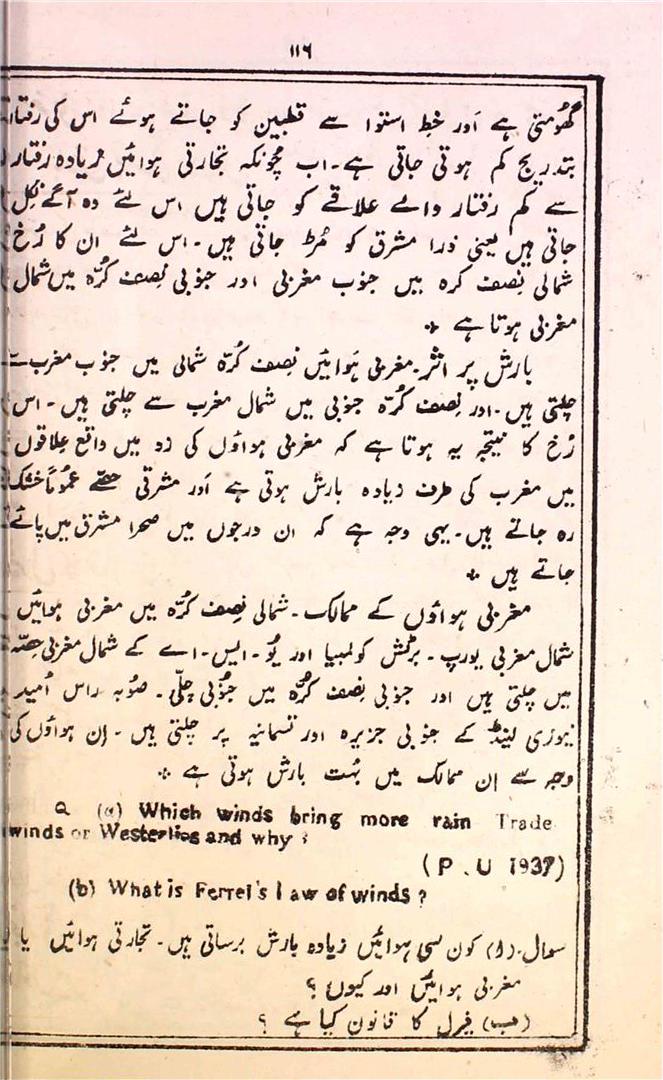 ۱۱۶
گھومتی ہے اَور خطِ استوا سے قطبین کو جاتے ہوئے اس کی رفتار
بتدریج کم ہوتی جاتی ہے۔ اب چونکہ تجارتی ہوائیں زیادہ رفتار
سے کم رفتار والے علاقے کو جاتی ہیں اس لئے وہ آگے نکل
جاتی ہیں یعنی ذرا مشرق کو مُڑ جاتی ہیں۔ اس لئے ان کا رُخ
شمالی نِصف کرہ میں جنوب مغربی اور جنوبی نِصف کرّہ میں شمال
مغربی ہوتا ہے ٭
بارش پر اثر۔ مغربی ہَوائیں نِصف کُرّہ شمالی میں جنوب مغرب سے
چلتی ہیں۔ اور نِصف کُرّہ جنوبی میں شمال مغرب سے چلتی ہیں۔ اس
رُخ کا نتیجہ یہ ہوتا ہے کہ مغربی ہواؤں کی زد میں واقع علاقوں
میں مغرب کی طرف زیادہ بارش ہوتی ہے اَور مشرقی حصّے عموماً خشک
رہ جاتے ہیں۔ یہی وجہ ہے کہ ان درجوں میں صحرا مشرق میں پائے
جاتے ہیں ٭
مغربی ہواؤں کے ممالک۔ شمالی نِصف کُرّہ میں مغربی ہوائیں
شمال مغربی یورپ۔ برٹش کولمبیا اور یُو۔ ایس۔ اے کے شمال مغربی حِصّہ
میں چلتی ہیں اور جنوبی نِصف کُرّہ میں جنُوبی چلّی۔ صُوبہ راس اُمید
نیوزی لینڈ کے جنوبی جزیرہ اور تسمانیہ پر چلتی ہیں۔ اِن ہواؤں کی
وجہ سے اِن ممالک میں بہُت بارش ہوتی ہے ٭
Q (a) Which winds bring more rain Trade
winds or Westerlies and why ?
(P. U 1937)
(b) What is Ferrel's law of winds ?
سوال۔ (ا) کون سی ہوائیں زیادہ بارش برساتی ہیں۔ تجارتی ہوائیں یا
مغربی ہوائیں اور کیوں ؟
(ب) فیرل کا قانون کیا ہے ؟